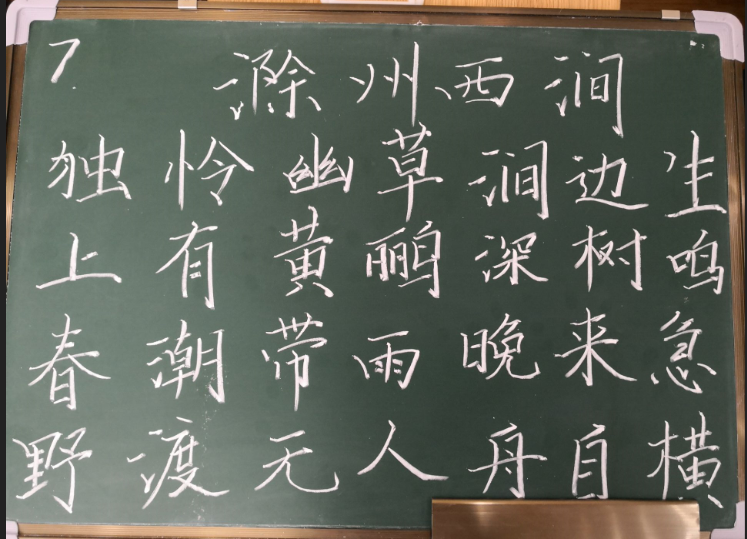 7.
滁州西涧
独怜幽草涧边生
上有黄鹂深树鸣
春潮带雨晚来急
野渡无人舟自横